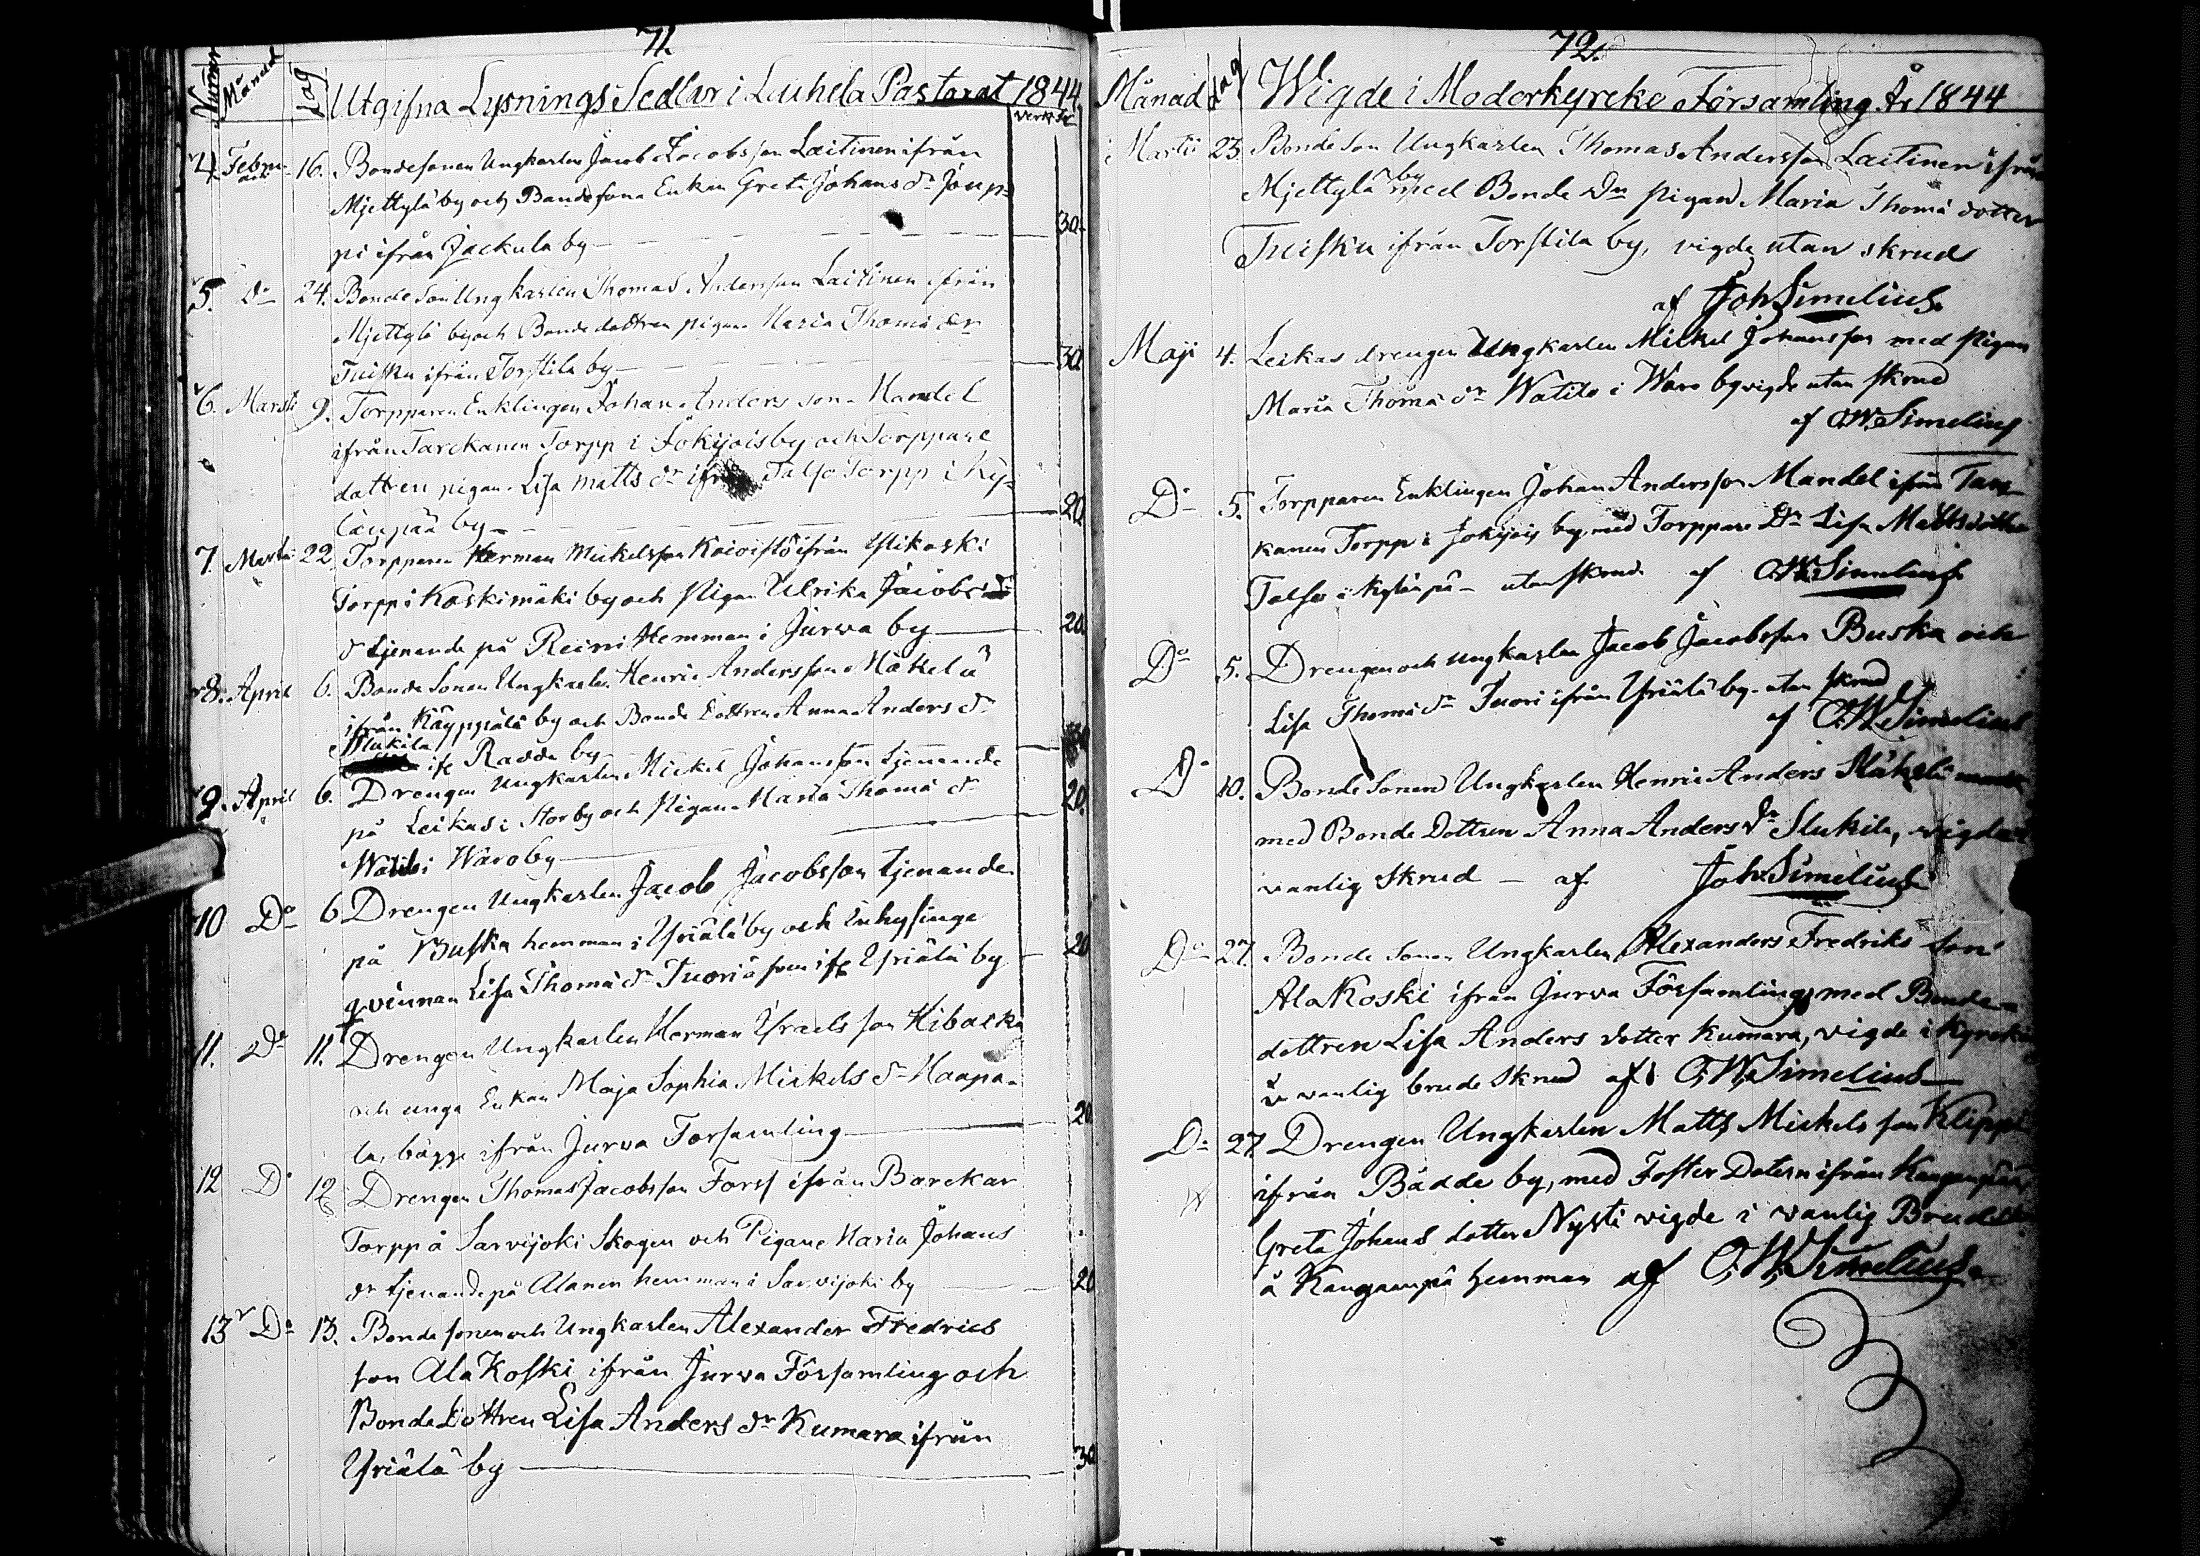 71.
Numer Månad Dag Utgifna Lysnings Sedlar i Laihela Pastorat 1844.
Verk Sr
4. Februarii 16. Bondesonen Ungkarlen Jacob Jacobsson Laitinen ifrån
Mjettylä by och Bondesons Enkan Greta Johans dr Joup=
pi ifrån Jackula by 30.
5. Do 24. Bonde Son Ungkarlen Thomas Andersson Laitinen ifrån
Mjettylä by och Bonde dottren pigan Maria Thomä dr
Tuisku ifrån Torstila by 30.
6. Martii 9. Torpparen Enklingen Johan Anders son Mandel
ifrån Tarckanen Torpp i Jokijois by och Torppare
dottren pigan Lisa Matts dr ifrån Talso Torpp i Ky=
länpää by 20.
7. Martii 22. Torpparen Herman Mickelsson Koivistö ifrån Ylikoski
Torpp i Koskimäki by och Pigan Ulrika Jacobs
dr tjenande på Reini Hemman i Jurva by 20.
8. April 6. Bonde Sonen Ungkarlen Henric Andersson Mäkelä
ifrån Käyppälä by och Bonde Dottren Anna Anders dr
Slukila ifr Radda by 30
9. April 6. Drengen Ungkarlen Mickel Johansson tjenande
på Leikas i Storby och Pigan Maria Thomä dr
Watilo i Waro by 20.
10 Do 6 Drengen Ungkarlen Jacob Jacobsson tjenande
på Buska hemman i Yriälä by och Inhysinge
qvinnan Lisa Thomä dr Tuori ifr Yriälä by 20
11. Do 11. Drengen Ungkarlen Herman Israelsson Hibacka
och unga Enkan Maja Sophia Mickels dr Haapa=
la, bägge ifrån Jurva Församling 20
12 Do 12 Drengen Thomas Jacobsson Forss ifrån Barckar
Torpp å Sarvijoki Skogen och Pigan Maria Johans
dr tjenande på Alanen hemman i Sarvijoki by 20
13 Do 13. Bonde sonen och Ungkarlen Alexander Fredrics
son Ala Koski ifrån Jurva Församling och
Bonde Dottren Lisa Anders dr Kumara ifrån
Yriälä by 30
72.
Månad dag Wigde i Moderkyrcko Församling År 1844
Martii 23. Bonde Son Ungkarlen Thomas Andersson Laitinen ifrån
Mjettylä by med Bonde Dr pigan Maria Thomä dotter
Tuisku ifrån Torstila by, vigde utan skrud
af Joh Simelius
Maji 4. Leikas drengen Ungkarlen Mickel Johansson med Pigan
Maria Thomä dr Watilo i Waro by vigde utan skrud
af O.W. Simelius
Do 5. Torpparen Enklingen Johan Andersson Mandel ifrån Tarc=
kanen Torpp i Jokijois by med Torppare Dr Lisa Mattsdotter
Talso i Kylänpä utan skrud af O.W. Simelius
Do 5. Drengen och Ungkarlen Jacob Jacobsson Buska och
Lisa Thomä dr Tuori ifrån Yriälä by utan skrud
af O.W. Simelius
Do 10. Bonde Sonen Ungkarlen Henric Anders Mäkelä
med Bonde Dottren Anna Anders dr Slukila, vigde i
vanlig Skrud af Joh Simelius
Do 27. Bonde Sonen Ungkarlen Alexanders Fredriks son
Ala Koski ifrån Jurva Församling med Bonde
dottren Lisa Anders dotter Kumara, vigde i Kyrckan
i vanlig brude Skrud af O.W. Simelius
Do 27 Drengen Ungkarlen Matts Mickels son Klippi
ifrån Rådde by, med Foster Dotern ifrån Kanganpä
Greta Johans dotter Nysti vigde i vanlig Brudskrud
å Kangaanpä hemman af O.W. Simelius.